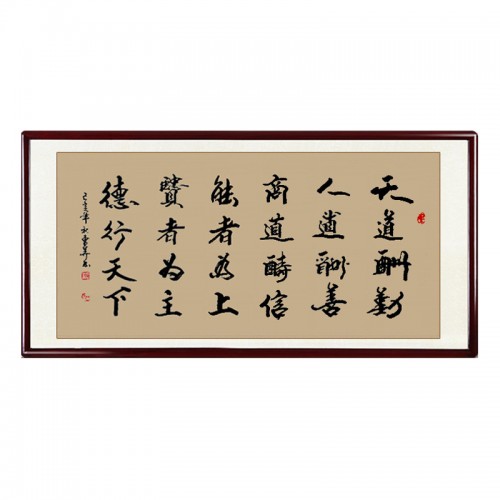 天道酬勤
人道酬善
商道醻信
能者為上
賢者为主
德行天下
己亥年